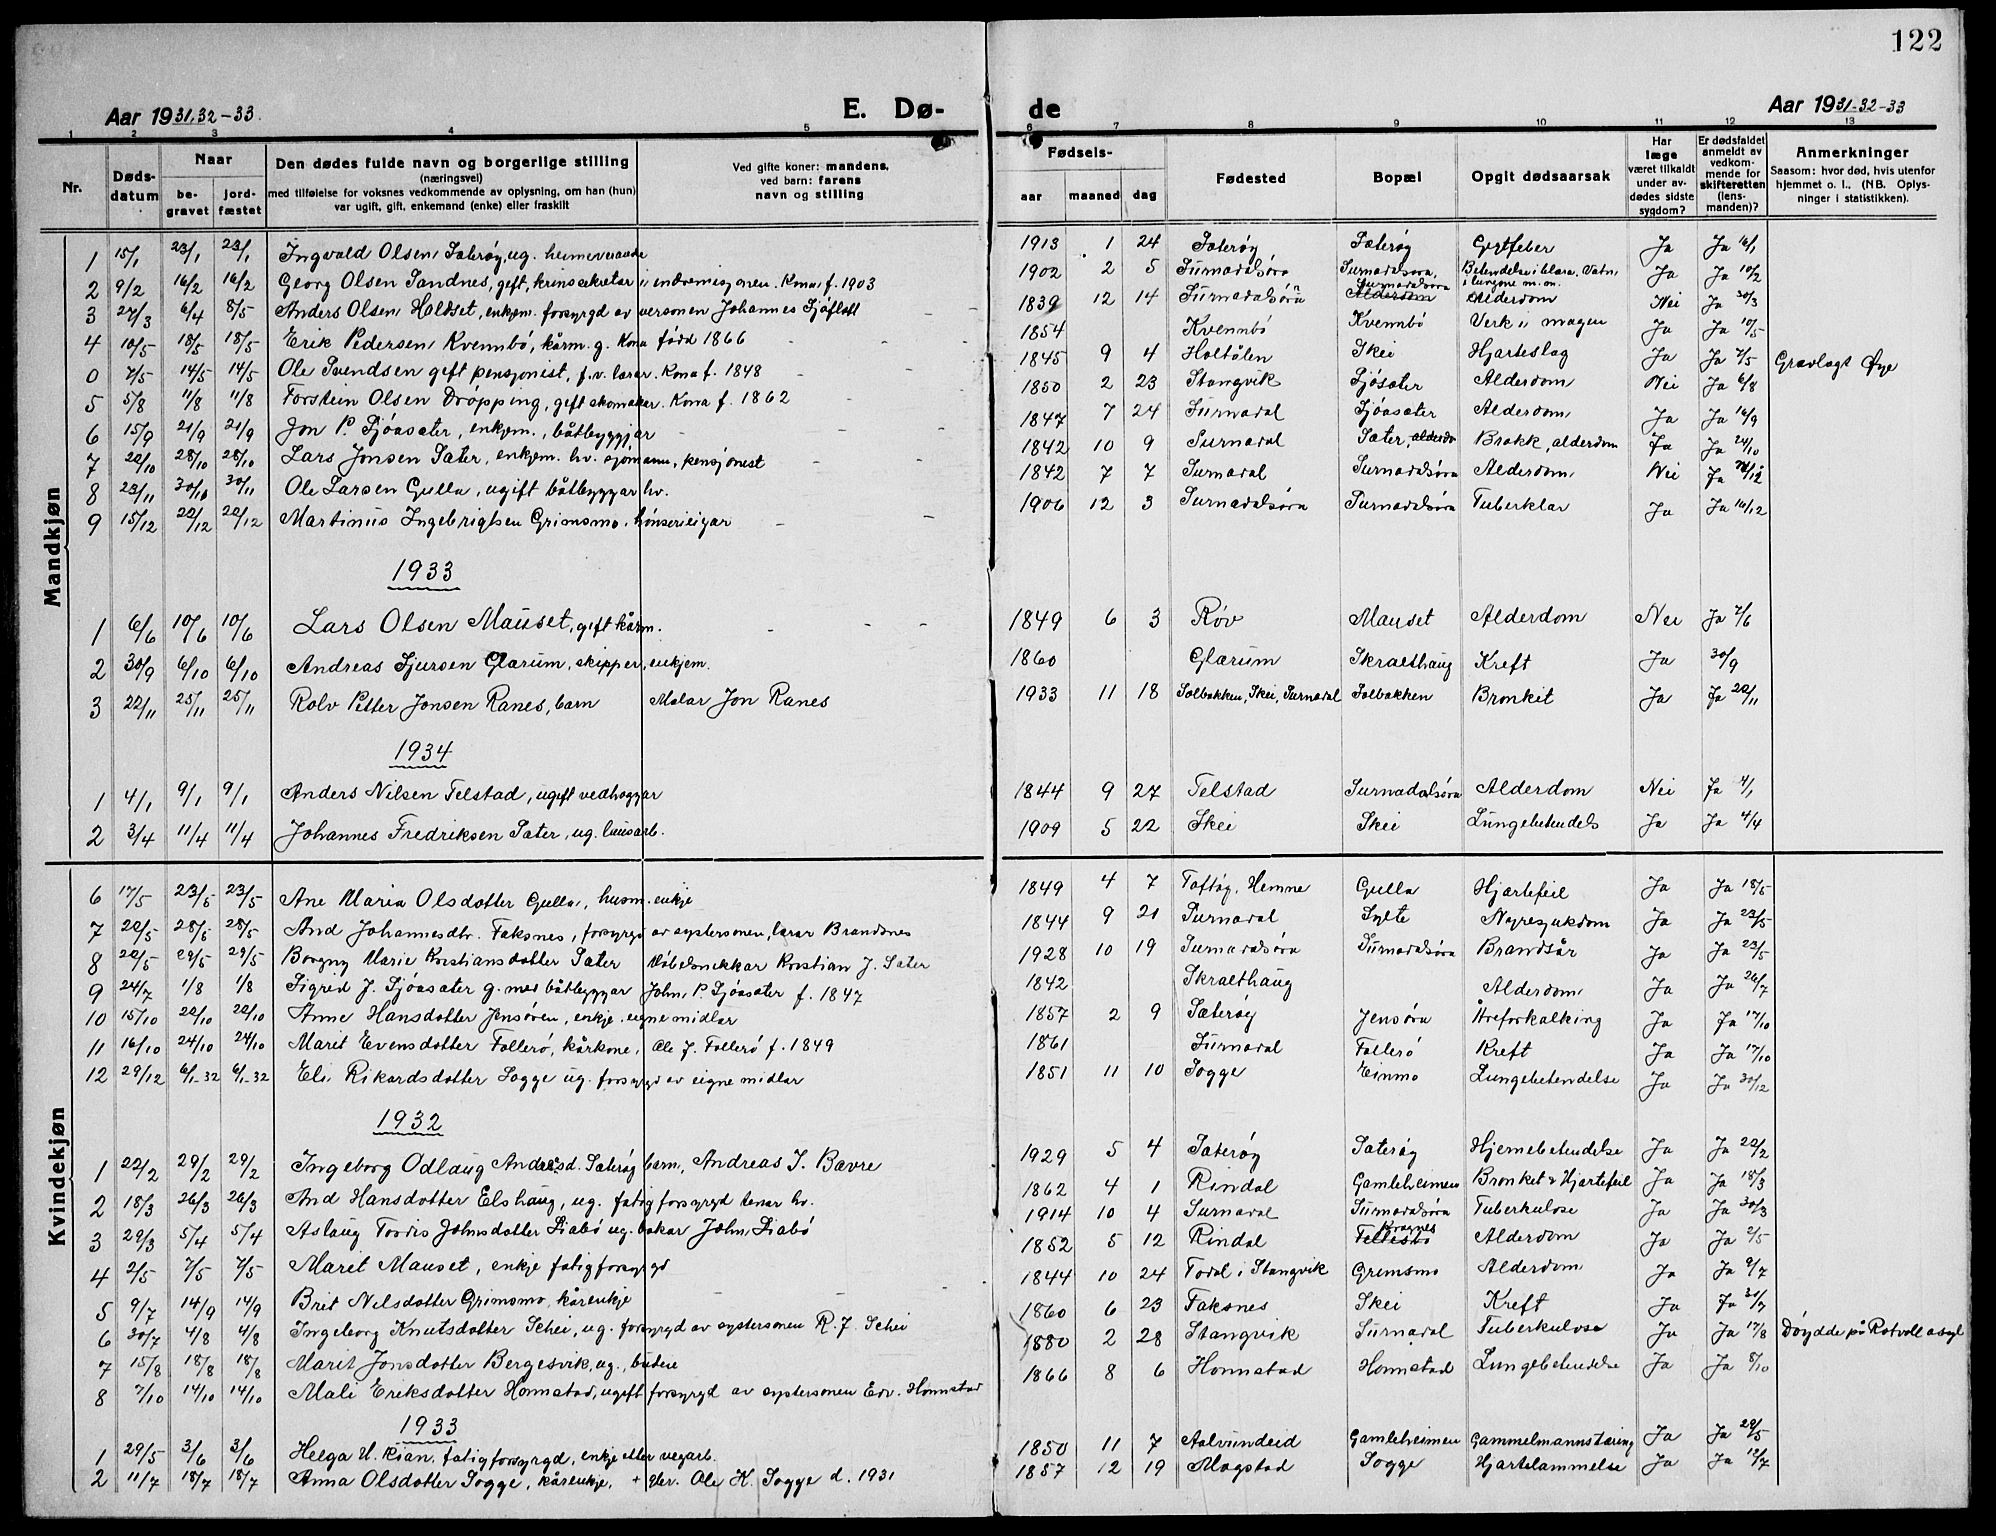 122
Aar 1931,32-33.
E. Dø-
de
Aar 1931-32-33
1 2 3 4 5 6 7 8 9 10 11 12 13
Nr.
Døds-
datum
Naar
be-
gravet
jord-
fæstet
Den dødes fulde navn og borgerlige stilling
(næringsvei)
med tilføielse for voksnes vedkommende av oplysning, om han (hun)
var ugift, gift, enkemand (enke) eller fraskilt
Ved gifte koner: mandens,
ved barn: farens
navn og stilling
Fødsels-
aar maaned dag
Fødested
Bopæl
Opgit dødsaarsak
Har
læge
været tilkaldt
under av-
dødes sidste
sygdom?
Er dødsfaldet
anmeldt av
vedkom-
mende for
skifteretten
(lens-
manden)?
Anmerkninger
Saasom: hvor død, hvis utenfor
hjemmet o. l., (NB. Oplys-
ninger i statistikken).
Mandkjøn
1 15/1 23/1 23/1 Ingvald Olsen Sæterøy, ug. heimeverande 1913 1 24 Sæterøy Sæterøy Ja Ja 16/1
2 9/2 16/2 16/2 Georg Olsen Sandnes, gift, krinssekretær i indremisjonen. Kona f. 1903 1902 2 5 Surnadalsøra Surnadalsøra, Ja Ja 10/2
3 27/3 6/4 8/5 Anders Olsen Holdset, enkjem. forsyrgd av versonen Johannes Sjøflot 1839 12 14 Surnadalsøra Surnadalsøra Alderdom Nei Ja 30/3
4 10/5 18/5 18/5 Erik Pedersen Kvennbø, kårm. g. Kona fødd 1866 1854 Kvennbø Kvennbø Verk i magen Ja Ja 10/5
0 7/5 14/5 14/5 Ole Svendsen gift pensjonist, f.v. lærar. Kona f. 1848 1845 9 4 Holtålen Skei Hjarteslag Ja Ja 7/5 Gravlagt Øye
5 5/8 11/8 11/8 Torstein Olsen Drøpping, gift skomakar. Kona f. 1862 1850 2 23 Stangvik Sjøsæter Alderdom Nei Ja 6/8
6 15/9 21/9 21/9 Jon P. Sjøasæter, enkjem., båtbyggjar 1847 7 24 Surnadal Sjøasæter Alderdom Ja Ja 16/9
7 20/10 28/10 28/10 Lars Jonsen Sæter, enkjem. hv. sjømann, pensjonist 1842 10 9 Surnadal Sæter, Brokk, alderdom Ja Ja 24/10
8 23/11 30/10 30/11 Ole Larsen Gulla, ugift båtbyggar hv. 1842 7 7 Surnadal Surnadalsøra Alderdom Nei Ja
9 15/12 22/12 22/12 Martinus Ingebrigtsen Grimsmo. hønserieigar 1906 12 3 Surnadalsøra Surnadalsøra Tuberklar Ja Ja 16/12
1933
1 6/6 10/6 10/6 Lars Olsen Mauset, gift kårm. 1849 6 3 Røv Mauset Alderdom Nei Ja 7/6
2 30/9 6/10 6/10 Andreas Sjursen Glærum, skipper, enkjem. 1860 Glærum Skralthaug Kreft Ja 30/9
3 22/11 25/11 25/11 Rolv Petter Jonsen Ranes, barn Malar Jon Ranes 1933 11 18 Solbakken, Skei, Surnadal Solbakken Bronkit Ja Ja 22/11
1934
1 4/1 9/1 9/1 Anders Nilsen Telstad, ugift vedhoggar 1844 9 27 Telstad Surnadalsøra Alderdom Nei Ja 4/1
2 3/4 11/4 11/4 Johannes Fredriksen Sæter, ug. lausarb. 1909 5 22 Skei Skei Lungebetendels Ja Ja 4/4
Kvindekjøn
6 17/5 23/5 23/5 Ane Maria Olsdotter Gulla, husm. enkje 1849 4 7 Taftøy, Hemne Gulla Hjartefeil Ja Ja 18/5
7 20/5 28/5 28/5 And Johannesdtr. Faksnes, forsyrgd av systersonen, lærar Brandsnes 1844 9 21 Surnadal Sylte Nyresjukdom Ja Ja 22/5
8 20/5 29/5 29/5 Borgny Marie Kristiansdotter Sæter Møbelsnekkar Kristian J. Sæter 1928 10 19 Surnadalsøra Surnadalsøra Brandsår Ja Ja 23/5
9 24/7 1/8 1/8 Sigrid J. Sjøasæter g. med båtbyggjar John P. Sjøasæter f. 1847 1842 Skralthaug Alderdom Ja Ja 26/7
10 15/10 22/10 22/10 Anne Hansdotter Jensøren, enkje. eigne midlar 1857 2 9 Sæterøy Jensøra Åreforkalking Ja Ja 17/10
11 16/10 24/10 24/10 Marit Evensdotter Follerø, kårkone, Ole J. Follerø f. 1849 1861 Surnadal Follerø Kreft Ja Ja 17/10
12 29/12 6/1-32 6/1-32 Eli Rikardsdotter Sogge ug. forsyrgd av eigne midlar 1851 11 10 Sogge Einmo Lungebetendelse Ja Ja 30/12
1932
1 22/2 29/2 29/2 Ingeborg Odlaug Andreasd. Sæterøy barn, Andreas J. Bævre 1929 5 4 Sæterøy Sæterøy Hjernebetendelse Ja Ja 22/2
2 18/3 26/3 26/3 And Hansdotter Elshaug, ug. fatigforsyrgd tenar hv. 1862 4 1 Rindal Gamleheimen Bronkit & Hjartefeil Ja Ja 18/3
3 29/3 5/4 5/4 Aslaug Tordis Johnsdotter Liabø ug. bakar John Liabø 1914 10 4 Surnadal Surnadalsøra Tuberkulose Ja Ja 30/3
4 2/5 7/5 7/5 Maret Mauset, enkje fatigforsyrgd 1852 5 12 Rindal Alderdom Ja Ja 2/5
5 9/7 14/9 14/9 Brit Nilsdotter Grimsmo, kårenkje 1844 10 24 Todal i Stangvik Gremsmo Alderdom Ja Ja 9/7
6 30/7 4/8 4/8 Ingeborg Knutsdotter Schei, ug. forsyrgd av systersonen R. J. Schei 1860 6 23 Faksnes Skei Kreft Ja Ja 30/7
7 15/8 18/8 18/8 Marit Jonsdotter Bergesvik, ug., budeie 1880 2 28 Stangvik Surnadal Tuberkulose Ja Ja 17/8 Døydde på Rotvoll asyl
8 7/10 14/10 14/10 Mali Eriksdotter Honnstad, ugift forsyrgd av systersonen Edv. Honnstad 1866 8 6 Honnstad Honnstad Lungebetendelse Ja Ja 8/10
1933
1 29/5 3/6 3/6 Helga U. Kian, fatigforsyrgd, enkje etter vegarb. 1850 11 7 Aalvundeid Gamleheimen Gammelmannstæring Ja Ja 29/5
2 11/7 18/7 18/7 Anna Olsdotter Sogge, kårenkje, + gbr. Ole K. Sogge d. 1931 1857 12 19 Mogstad Sogge Hjartelammelse Ja Ja 12/7